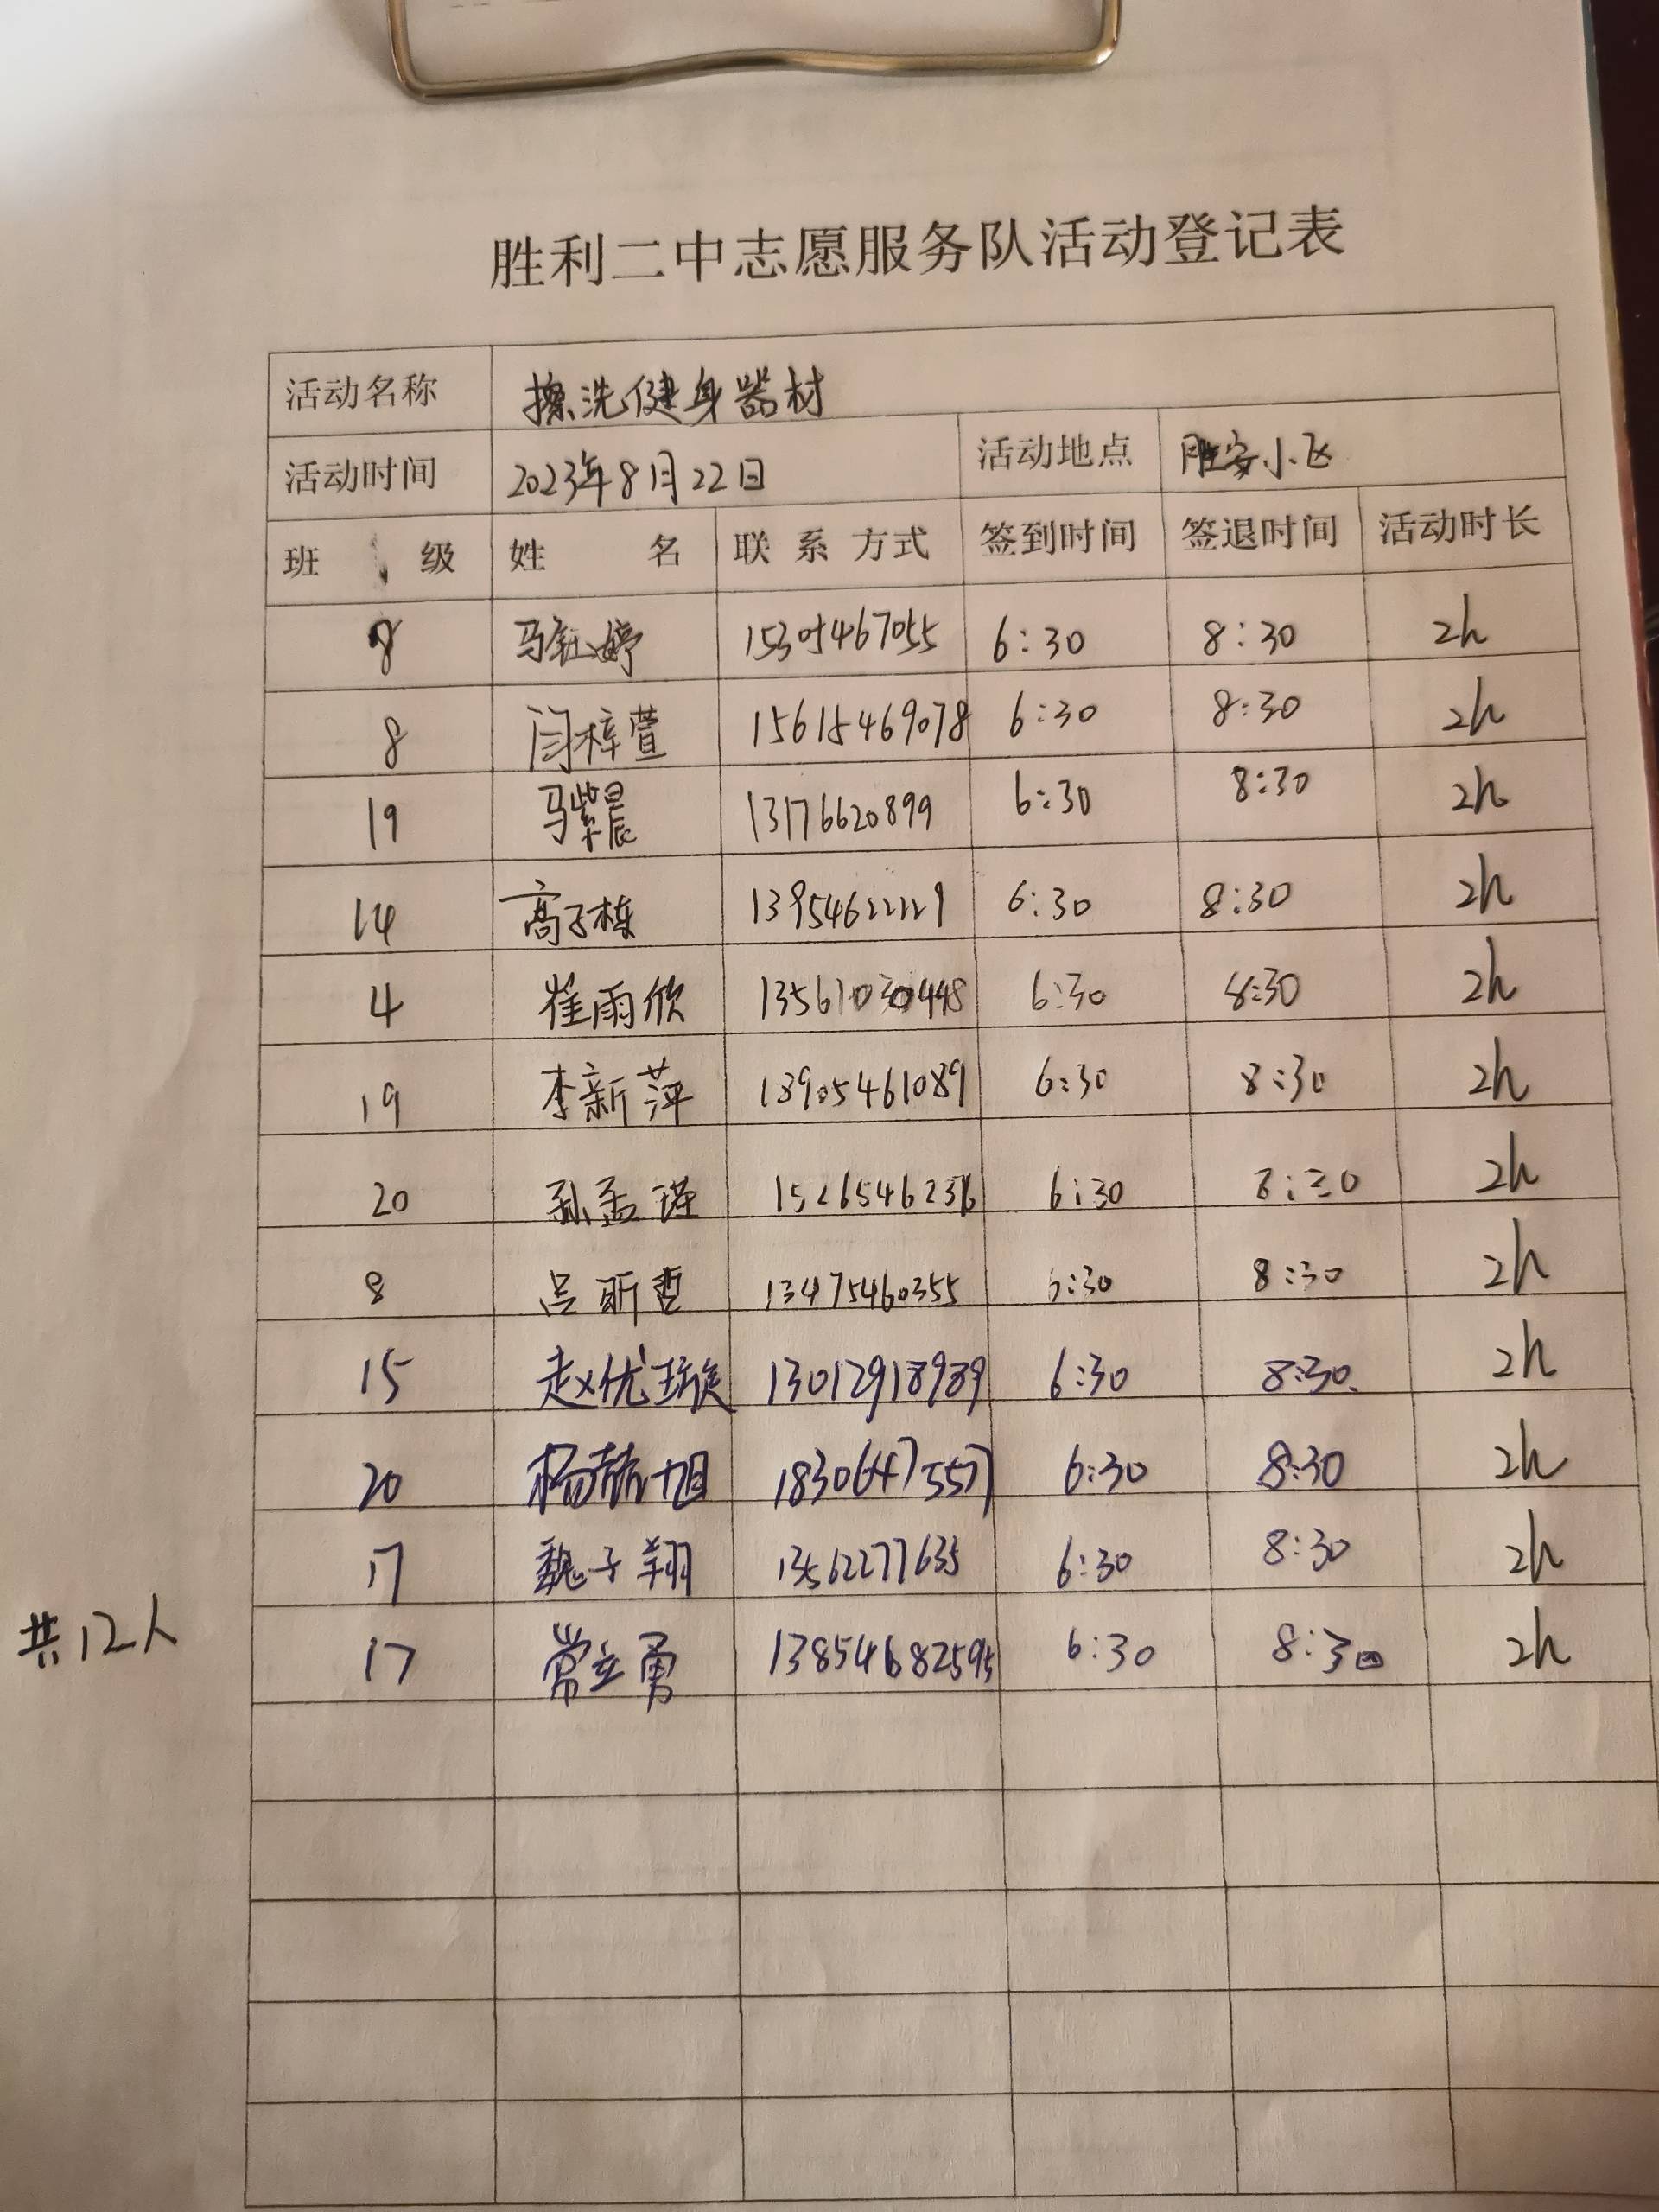 胜利二中志愿服务队活动登记表
活动名称 擦洗健身器材
活动时间 2023年8月22日 活动地点 胜安小区
班 级 姓 名 联 系 方式 签到时间 签退时间 活动时长
8 马钰婷 15305467055 6:30 8:30 2h
8 闫梓萱 15615469078 6:30 8:30 2h
19 马紫晨 13176620899 6:30 8:30 2h
14 高子栋 13954622229 6:30 8:30 2h
4 崔雨欣 13561030448 6:30 8:30 2h
19 李新萍 13905461089 6:30 8:30 2h
20 孙孟瑾 1526546236 6:30 8:30 2h
8 吕昕哲 13475460355 6:30 8:30 2h
15 赵优璇 13012918989 6:30 8:30 2h
20 杨赫旭 18306475577 6:30 8:30 2h
17 魏子翔 13562277635 6:30 8:30 2h
17 常立勇 13854682595 6:30 8:30 2h
共12人